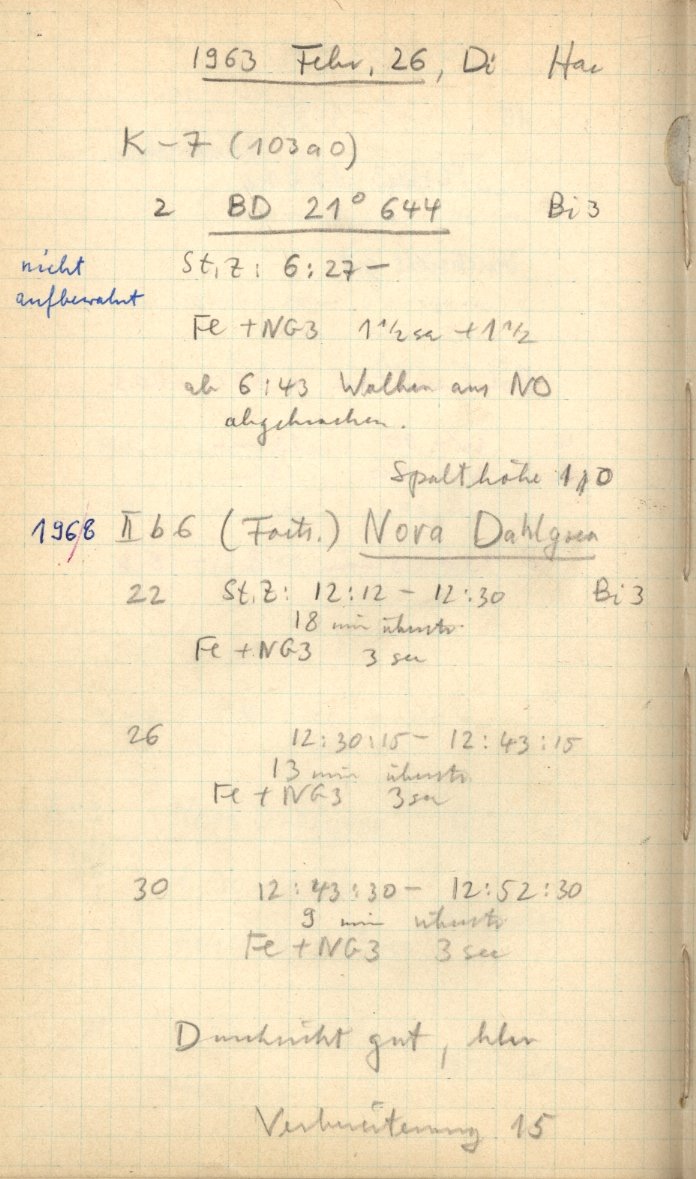 1963 Febr. 26, Di Hae
K-7 (103a0)
2 BD 21° 644 Bi 3
nicht
aufbewahrt
St.Z: 6:27 -
Fe + NG3 1 1/2 sec + 1 1/2
ab 6:43 Wolken aus NO
abgebrochen.
Spalthöhe 1,0
1968 II b 6 (Forts.) Nova Dahlgren
22 St.Z: 12:12 - 12:30 Bi 3
18 min überstr.
Fe + NG3 3 sec
26 12:30:15 - 12:43:15
13 min überstr.
Fe + NG3 3 sec
30 12:43:30 - 12:52:30
9 min überstr.
Fe + NG3 3 sec
Durchsicht gut,
Verbreiterung 15